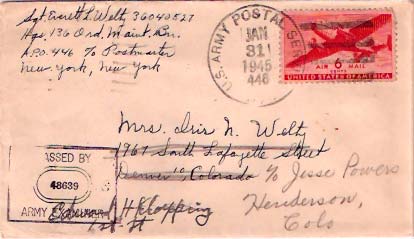 Sgt Everett L. Welty, 36040527
Hqs. 136 Ord. Maint. Bn.
A.P.O. 446 c/o Postmaster
New York, New York
U.S. ARMY POSTAL SER
JAN
31
1945
446
AIR 6 MAIL
CENTS
UNITED STATES OF AMERICA
Mrs. Iris N. Welty
1967 South Lafayette Street
Denver, Colorado c/o Jesse Powers
Henderson,
Colo
ASSED BY
48639
ARMY EXAMINER